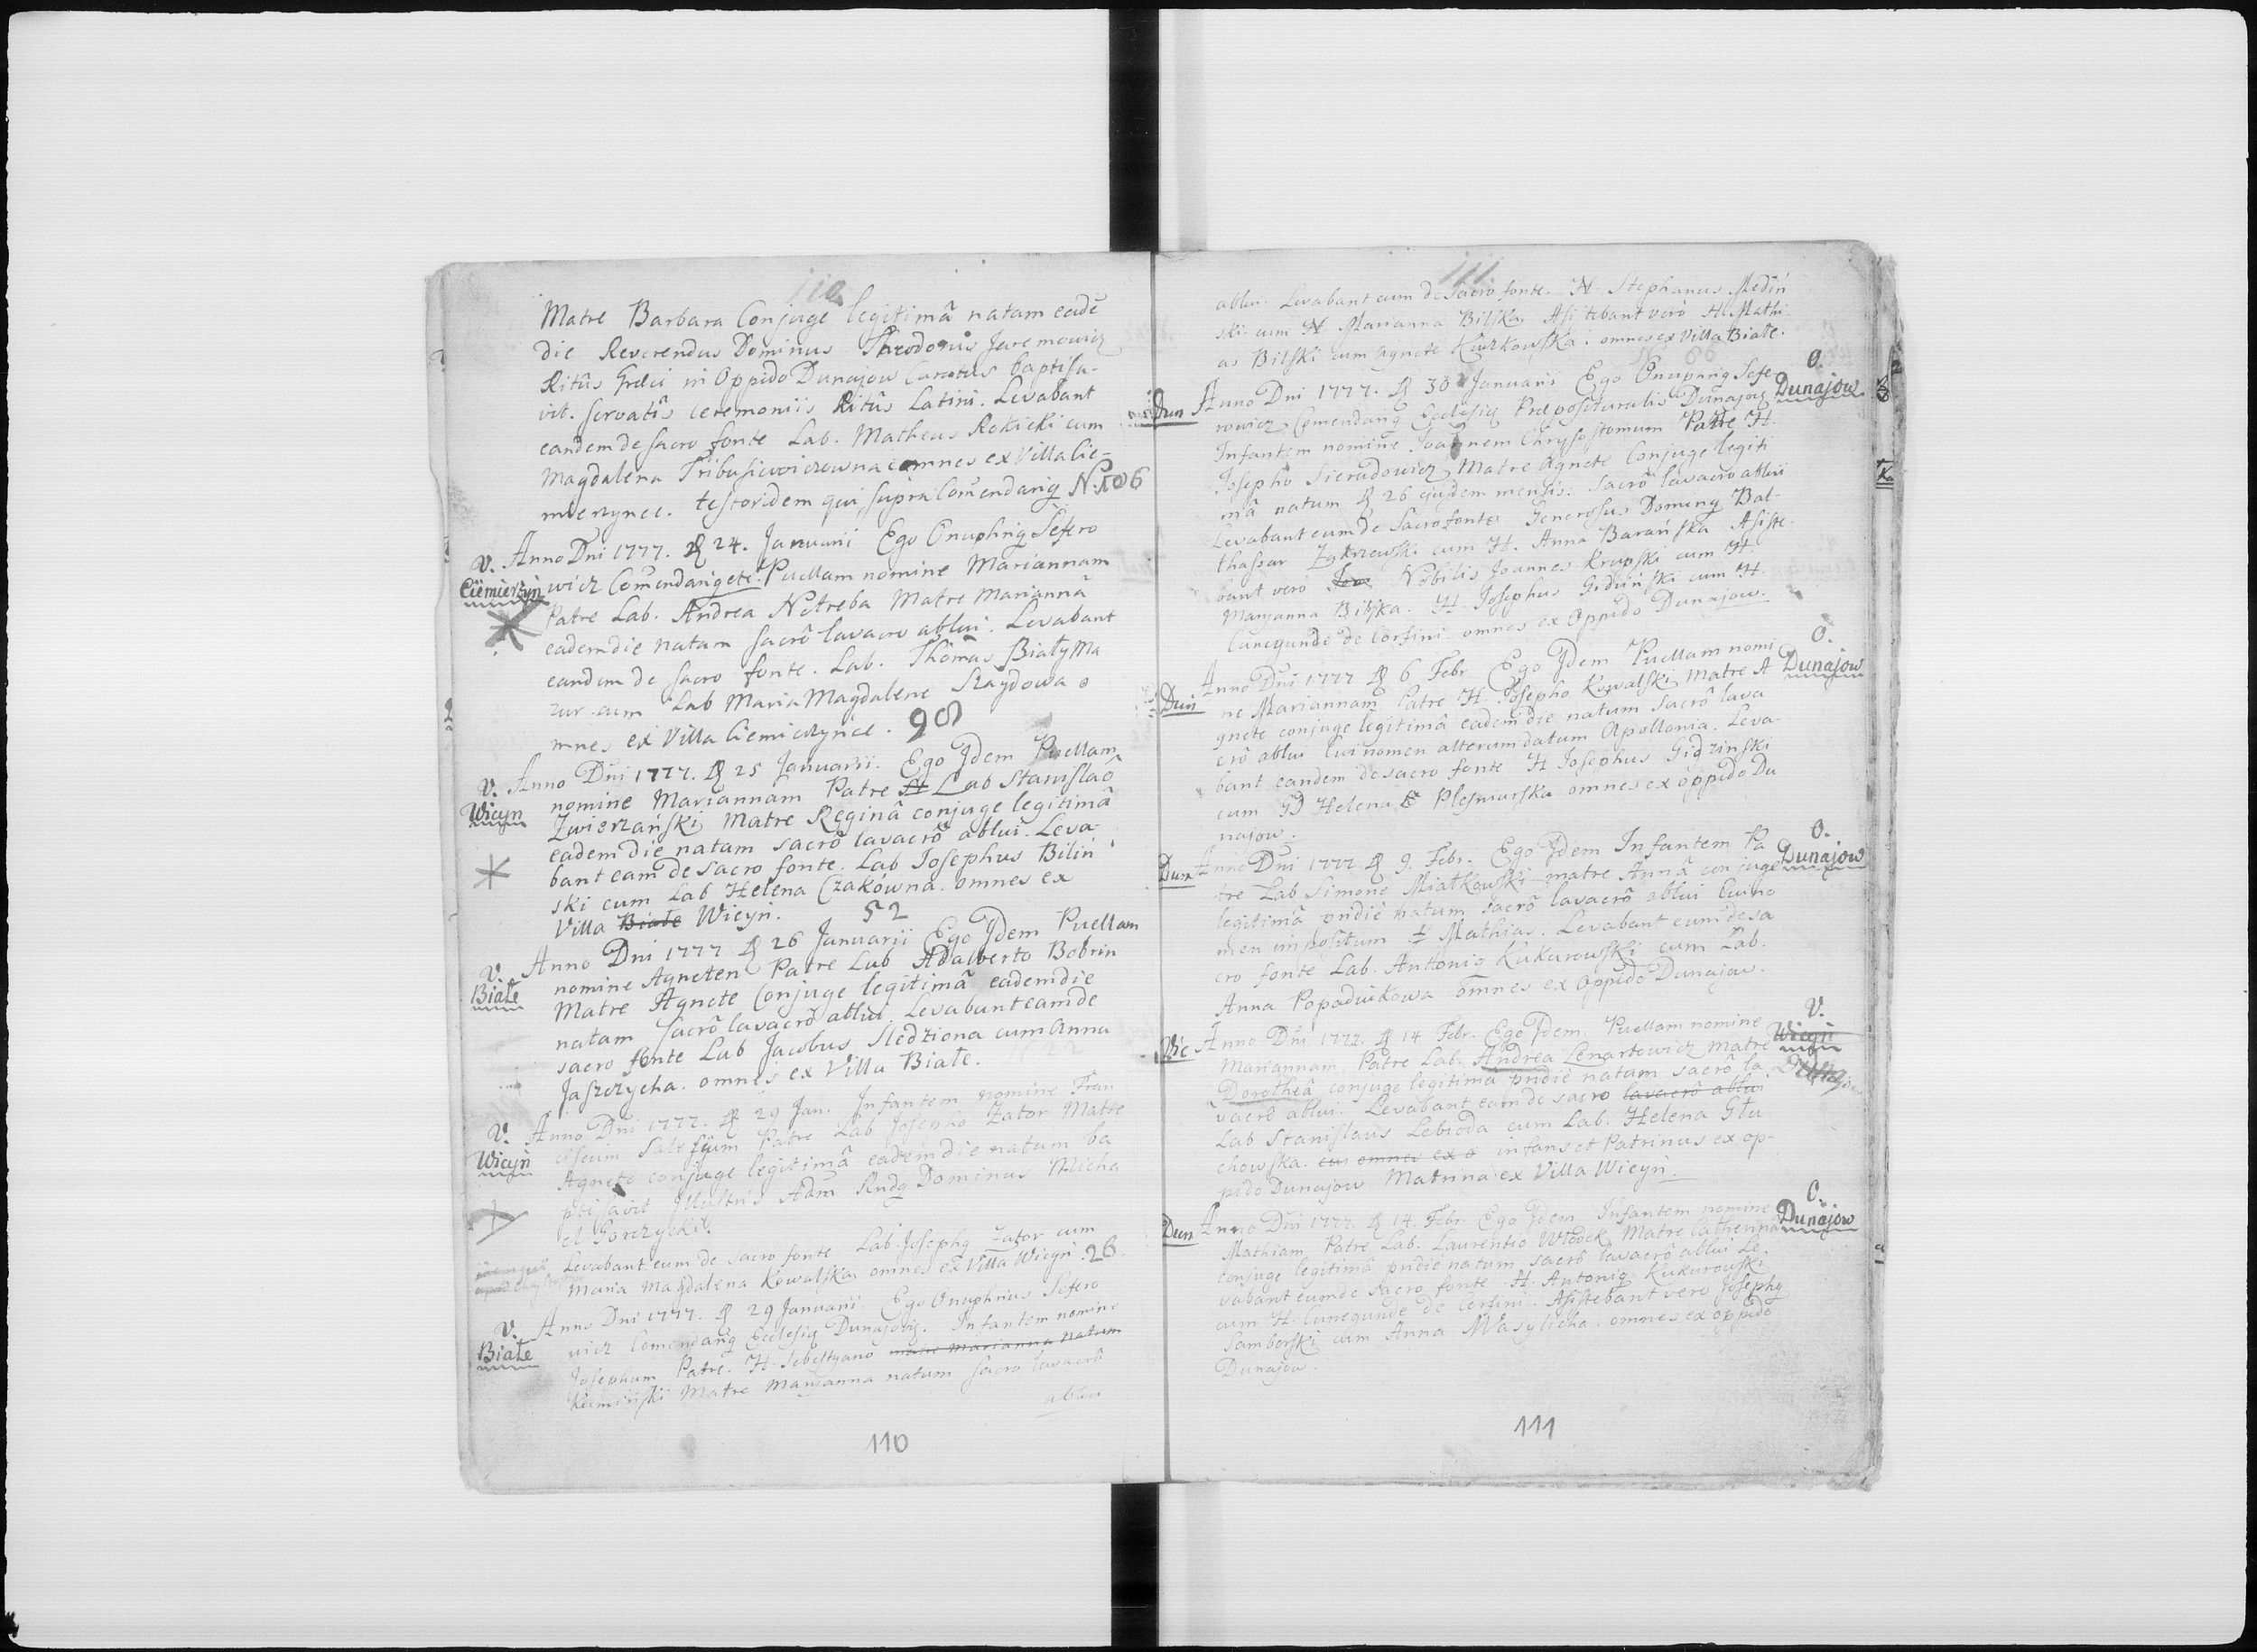 110
Matre Barbara Conjuge legitimâ natam eadē
die Reverendus Dominus Theodorus Jaremowicz
Ritûs Græci in Oppido Dunajow Curatus baptisa-
vit. servatis ceremoniis Ritûs Latini. Levabant
eandem de sacro fonte Lab. Matheus Rokicki cum
Magdalena Tribusiewiczowna omnes ex Villa Cie-
mierzynce. testor idem qui supra Com̃endarig N. 106
V. Anno Dni 1777. d 24. Januarii Ego Onuphrig Sefero
Ciemierzyn wicz Com̃endarig etc. Puellam nomine Mariannam
Patre Lab. Andrea Netreba Matre Mariannâ
eadem die natam sacrô lavacro ablui. Levabant
eandem de sacro fonte. Lab. Thomas Biały Ma
zur cum Lab Maria Magdalena Szaydowa o
mnes ex Villa Ciemierzynce. 98
V. Anno Dni 1777. d 25 Januarii. Ego Jdem Puellam
Wicyn nomine Mariannam Patre H Lab Stanislaô
Zwierzański Matre Reginâ conjuge legitimâ
eadem die natam sacrô lavacrô ablui. Leva-
bant eam de sacro fonte. Lab Josephus Biliń
ski cum Lab Helena Czakówna. omnes ex
Villa Białe Wicyn. 52
V. Anno Dni 1777 d 26 Januarii Ego Jdem Puellam
Białe nomine Agneten Patre Lab Adalberto Bobrin
Matre Agnete Conjuge legitimâ eadem die
natam sacrô lavacrô ablui. Levabant eam de
sacro fonte Lab Jacobus Sledziona cum Anna
Jaszczycha. omnes ex Villa Białe.
V. Anno Dni 1777. d 29 Jan. Infantem nomine Fran
Wicyn ciscum Salesium Patre Lab Josepho Zator Matre
Agnete conjuge legitimâ eadem die natum ba
ptisavit Jllustris Adm Rndg Dominus Micha
el Gorczycki.
Levabant eum de sacro fonte Lab. Josephg Zator cum
Maria Magdalena Kowalska omnes ex Villa Wicyn. 26
V. Anno Dni 1777. d 29 Januarii. Ego Onuphrius Sefero
Białe wicz Comendarig Ecclesię Dunajovię. Infantem nomine
Josephum Patre. H. Sebestyano matre Marianna natum
Matre Maryanna natum sacro lavacrô
ablui
110
111
ablui. Levabant eum de sacro fonte. H. Stephanus Mediń
ski cum H Marianna Bilska Asistebant verò H Mathi
as Bilski cum Agnete Kurkowska. omnes ex Villa Białe.
O.
Dun Anno Dni 1777. d 30 Januarii Ego Onuphrig Sefe Dunajow
rowicz Comendarig Ecclesię Præposituralis Dunajov
Infantem nomine Joannem Chrysostomum Patre H.
Josepho Sieradowicz Matre Agnete Conjuge legiti
mâ natum d 26 ejusdem mensis. sacrô lavacro ablui
Levabant eum de sacro fonte Generosus Doming Bal-
thasar Zakrzewski cum H. Anna Barańska Asiste-
bant verò Joan Nobilis Joannes Krupski cum H.
Maryanna Bilska. H Josephus Gidziński cum H.
Cunegunde de Corsini. omnes ex Oppido Dunajow.
O.
Dun Anno Dni 1777 d 6 Febr Ego Jdem Puellam nomi Dunajow
ne Mariannam Patre H. Josepho Kowalski Matre A
gnete conjuge legitimâ eadem die natum sacrô lava
crô ablui cui nomen alterum datum Apollonia. Leva-
bant eandem de sacro fonte H Josephus Gidzinski
cum GD Helena Plesniarska omnes ex oppido Du
najow.
O.
Dun Anno Dni 1777 d 9. Febr. Ego Jdem Infantem Pa Dunajow
tre Lab Simone Miatkowski matre Annâ conjuge
legitimâ pridie natum sacrô lavacrô ablui Cui no
men impositum Mathias. Levabant eum de sa
cro fonte Lab. Antonig Kukurowski cum Lab.
Anna Popadiukowa omnes ex Oppido Dunajow.
V.
Wic Anno Dni 1777. d 14 Febr. Ego Jdem Puellam nomine Wicyn
Mariannam Patre Lab. Andrea Lenartowicz Matre
Dorotheâ conjuge legitima pridie natam sacrô la
vacrô ablui. Levabant eam de sacro lavacrô ablui
Lab Stanislaus Lebioda cum Lab. Helena Głu
chowska. omnes ex o infans et Patrinus ex op-
pido Dunajow Matrina ex Villa Wicyn.
O.
Dun Anno Dni 1777. d 14. Febr. Ego Jdem Infantem nomine Dunajow
Mathiam Patre Lab. Laurentio Włocek Matre Catherina
conjuge legitimâ pridie natum sacrô lavacrô ablui Le-
vabant eum de sacro fonte H. Antonig Kukurowski
cum H. Cunegunde de Corsini. Asistebant vero Josephg
Samborski cum Anna Wasylicha. omnes ex oppido
Dunajow.
111